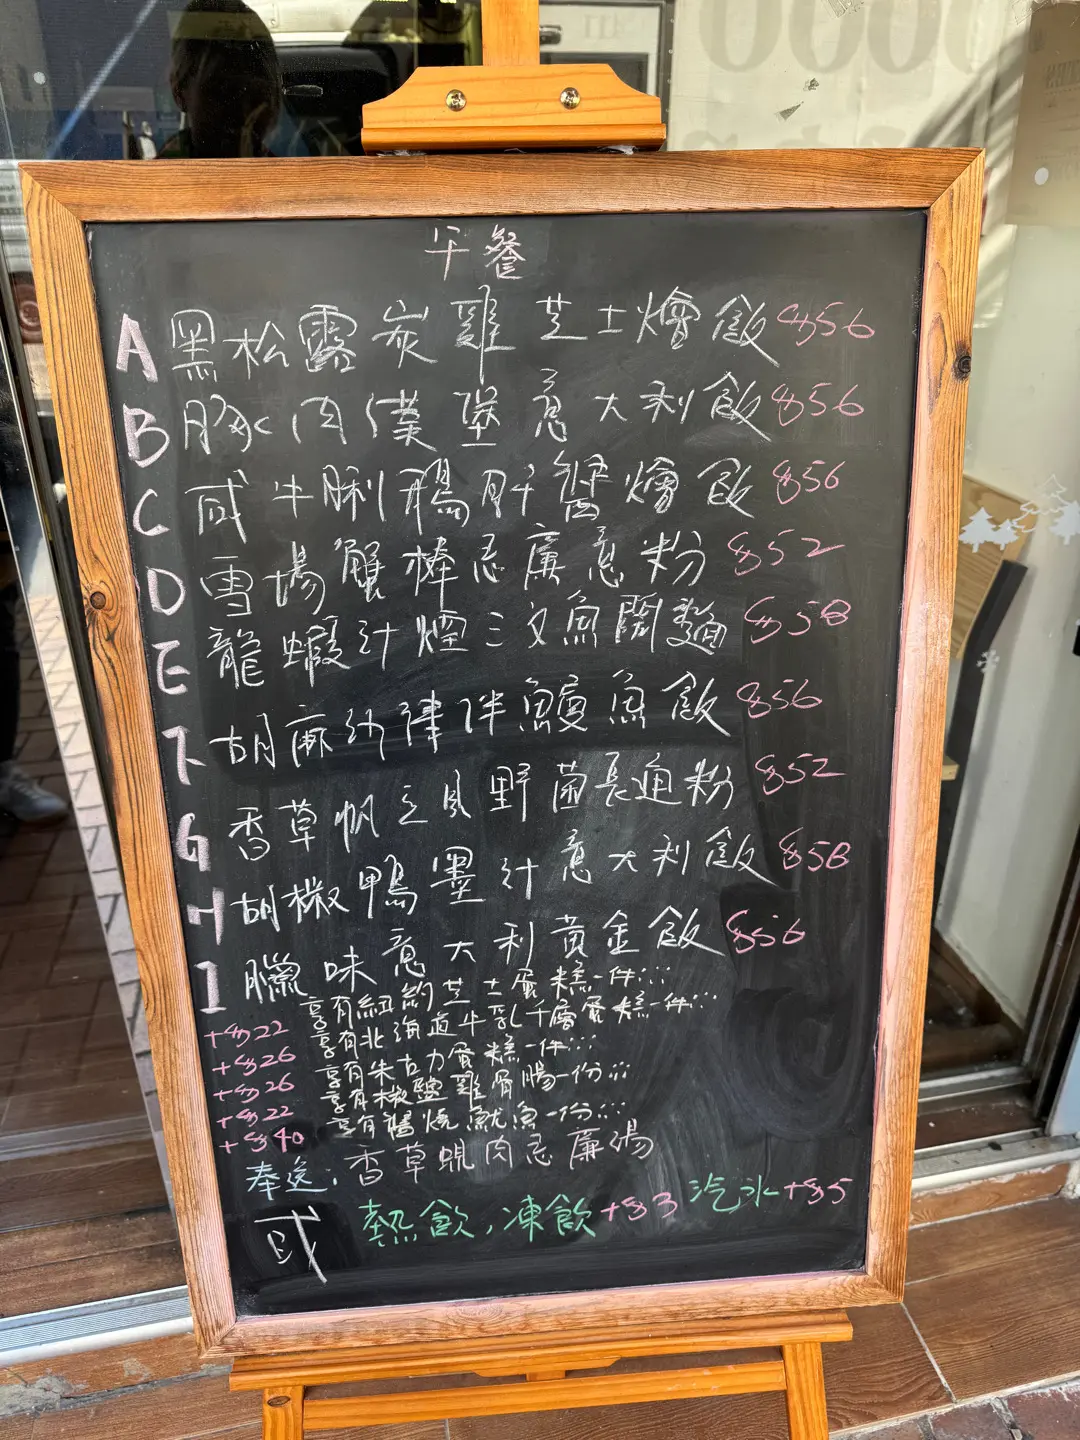 午餐
A 黑松露炭雞芝士燴飯 $56
B 豚肉漢堡意大利飯 $56
C 咸牛脷鵝肝醬燴飯 $56
D 雪場蟹棒忌廉意粉 $52
E 龍蝦汁煙三文魚闊麵 $58
F 胡麻汁津伴鰻魚飯 $56
G 香草帆立貝野菌長通粉 $52
H 胡椒鴨墨汁意大利飯 $58
I 臘味意大利黃金飯 $56
+$22 享有紐約芝士蛋糕一件
+$26 享有北海道牛乳千層蛋糕一件
+$26 享有朱古力蛋糕一件
+$22 享有椒鹽雞骨腸一份
+$40 享有醬燒魷魚一份
奉送：香草蜆肉忌廉湯
或 熱飲，凍飲+$3 汽水+$5